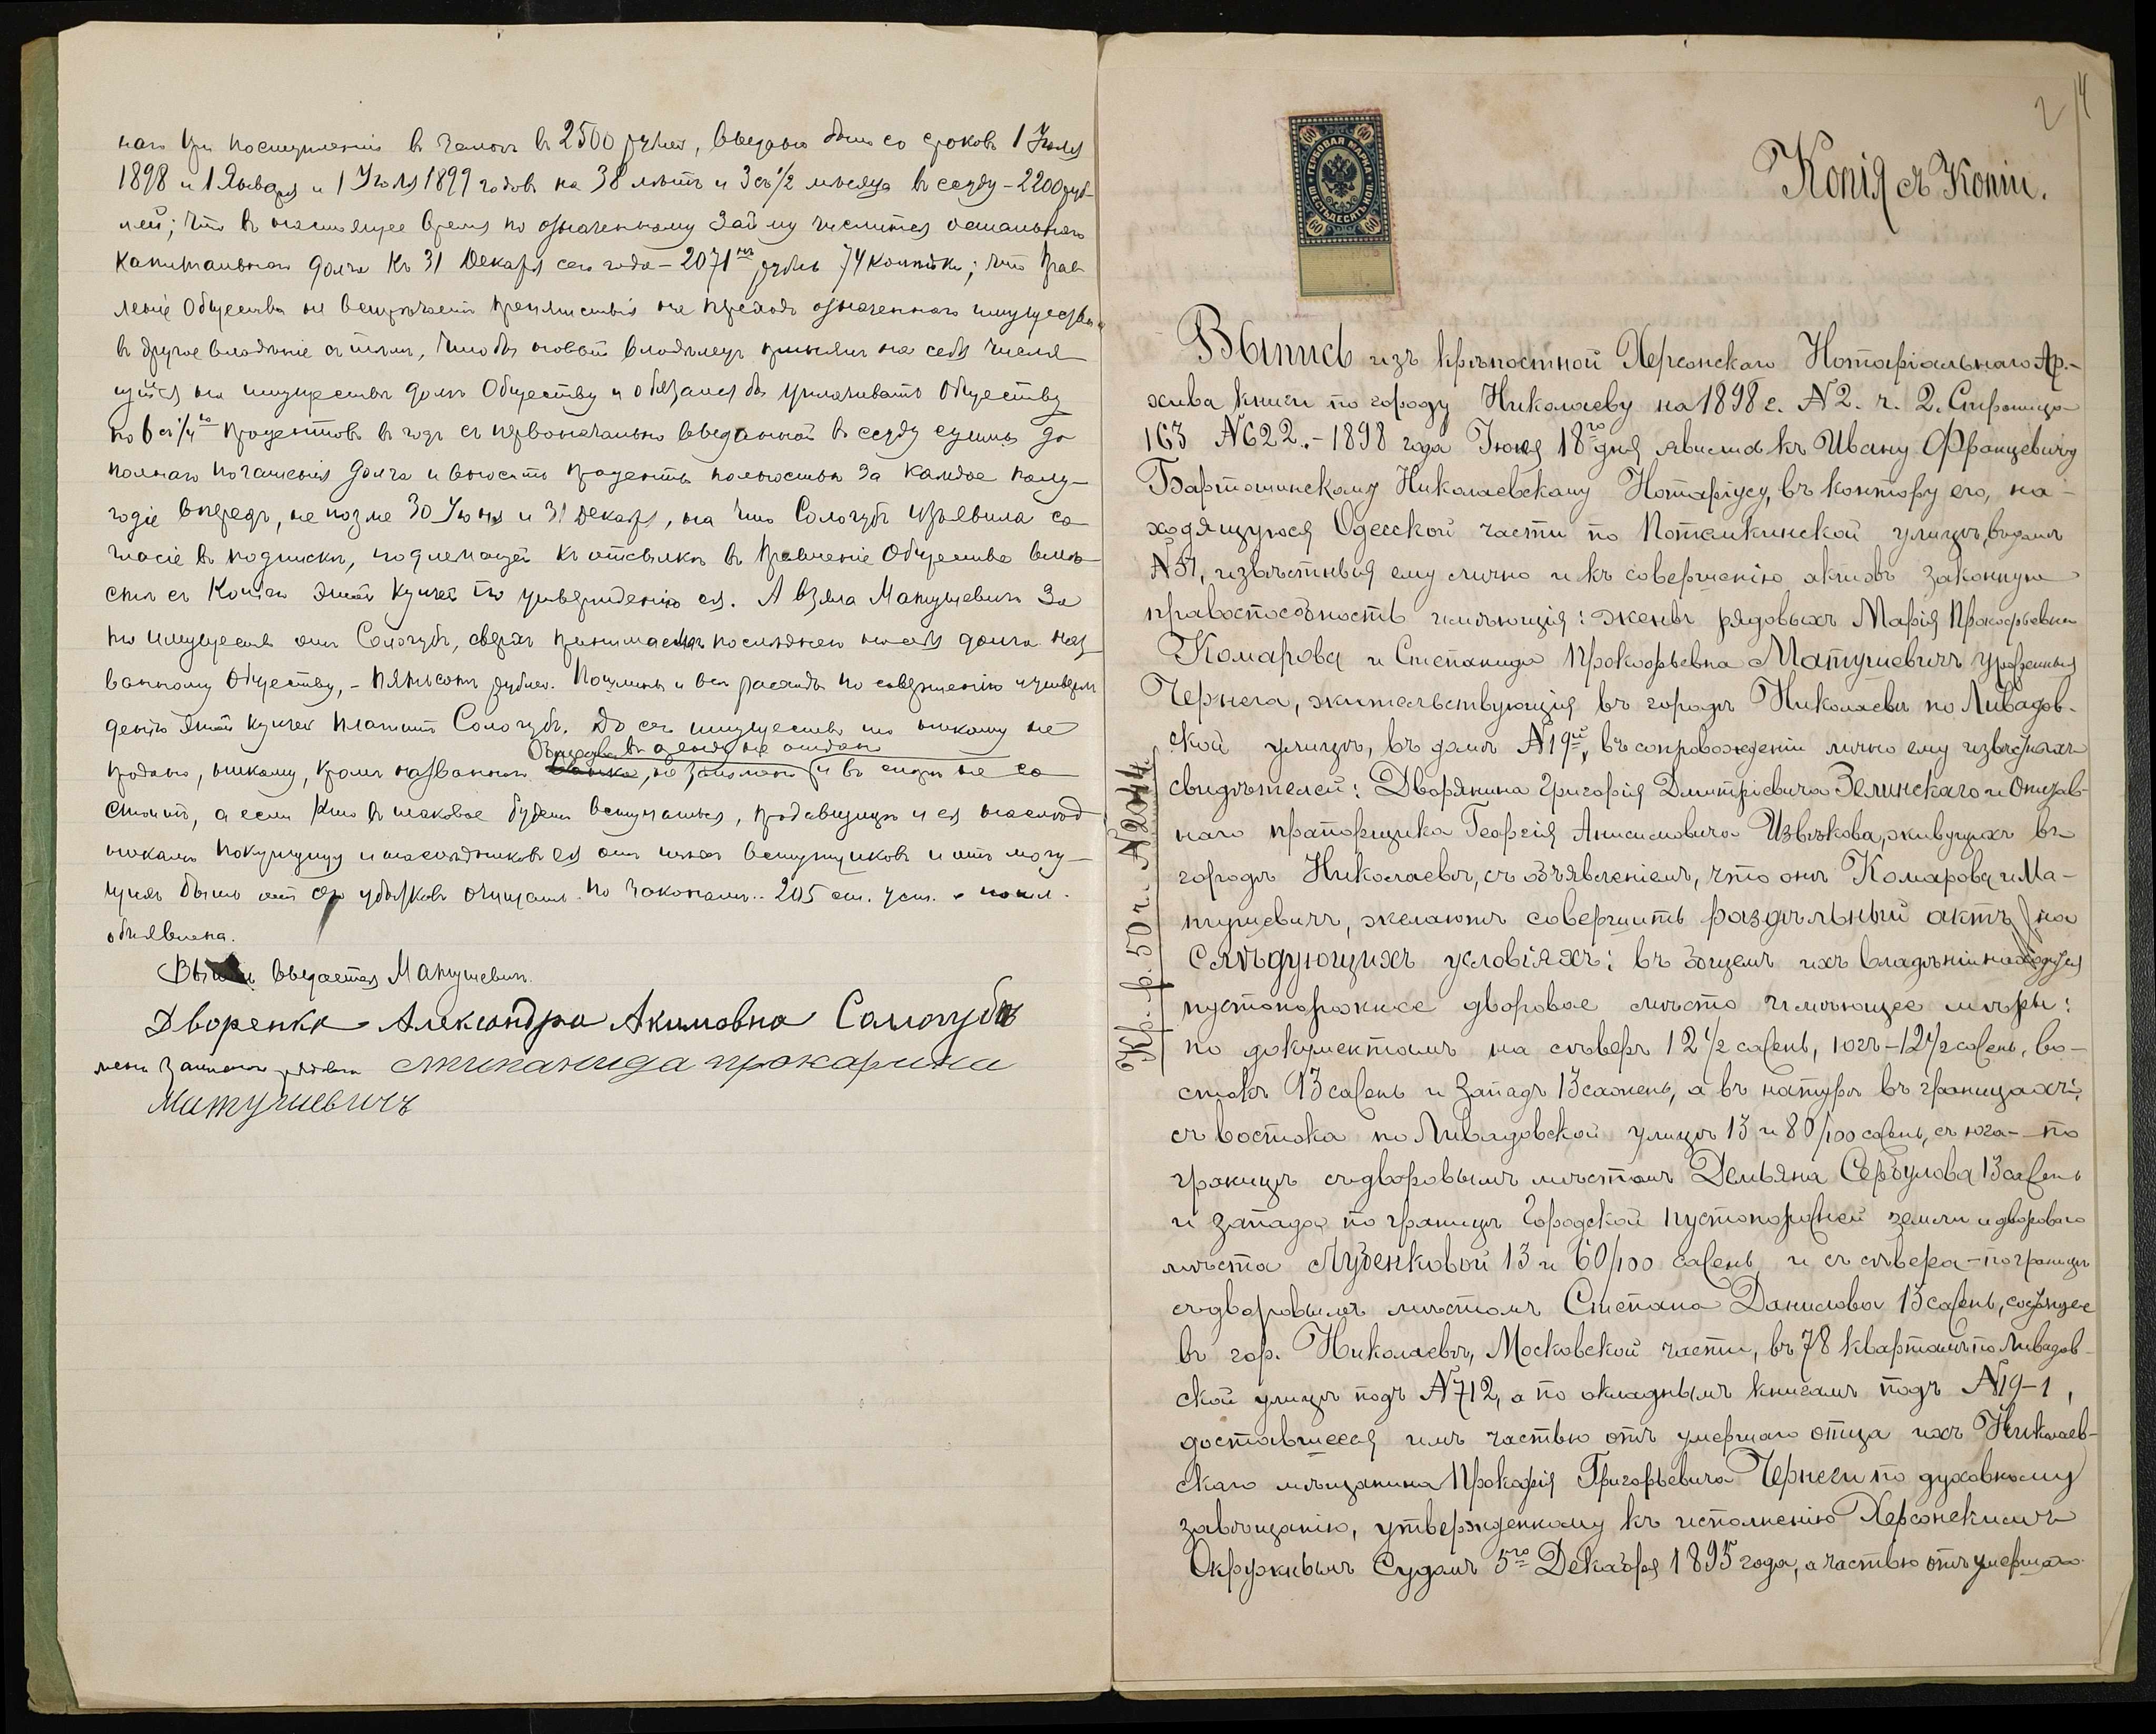 наго при поступленіи въ залогъ въ 2500 рублей, выдано было со сроковъ 1 Іюля
1898 и 1 Января и 1 Іюля 1899 годовъ на 38 лѣтъ и 3 съ 1/2 мѣсяца въ ссуду – 2200 руб-
лей; что въ настоящее время по означенному займу числится остальнаго
капитальнаго долга къ 31 Декабря сего года – 2071 рубль 74 копѣйки; что Прав-
леніе Общества не встрѣчаетъ препятствія на переходъ означеннаго имущества
въ другое владѣніе съ тѣмъ, чтобы новый владѣлецъ принялъ на себя числя-
щійся на имуществѣ долгъ Обществу и обязался бы уплачивать Обществу
по 6 съ 1/4 процентовъ въ годъ съ первоначально выданной въ ссуду суммы до
полнаго погашенія долга и вносить проценты полностью за каждое полу-
годіе впередъ, не позже 30 Іюня и 31 Декабря, на что Сологубъ изъявила со-
гласіе въ подпискѣ, подлежащей къ отсылкѣ въ Правленіе Общества вмѣ-
стѣ съ копіею этой купчей по утвержденію ея. А взяла Матушевичъ за
то имущество отъ Сологубъ, сверхъ принимаемаго послѣднею на себя долга наз-
ванному Обществу, – пятьсотъ рублей. Пошлины и всѣ расходы по совершенію и утверж-
денію этой купчей платитъ Сологубъ. До сего имущество то никому не
Общества въ аренду не отдано
продано, никому, кромѣ названнаго банка, не заложено и въ спорѣ не со-
стоитъ, а если кто въ таковое будетъ вступаться, продавщицѣ и ея наслѣд-
никамъ покупщицу и наслѣдниковъ ея отъ тѣхъ вступщиковъ и отъ могу-
щихъ быть отъ сего убытковъ очищать по законамъ. 205 ст. уст. о пошл.
объявлена.
Выпись выдается Матушевичъ.
Дворенка Александра Акимовна Сологубъ
жена запаснаго рядоваго степанида прокафивна
Матушевичъ
2 14
Копія съ Копіи.
60 60
ГЕРБОВАЯ МАРКА
ШЕСТЬДЕСЯТЪ КОП.
60 60
Выпись изъ крѣпостной Херсонскаго Нотаріальнаго Ар-
хива книги по городу Николаеву на 1898 г. № 2. ч. 2. Страница
163 № 622. – 1898 года Іюня 18го дня явились къ Ивану Францевичу
Бартошинскому Николаевскому Нотаріусу, въ контору его, на-
ходящуюся Одесской части по Потемкинской улицѣ, въ домѣ
№ 51, извѣстныя ему лично и къ совершенію актовъ законную
правоспособность имѣющія: жены рядовыхъ Марія Прокофьевна
Комарова и Степанида Прокофьевна Матушевичъ урожденныя
Чернега, жительствующія въ городѣ Николаевѣ по Ливадов-
ской улицѣ, въ домѣ № 19й, въ сопровожденіи лично ему извѣстныхъ
свидѣтелей: Дворянина Григорія Дмитріевича Зелинскаго и Отстав-
наго прапорщика Георгія Анисимовича Извѣкова, живущихъ въ
городѣ Николаевѣ, съ объявленіемъ, что онѣ Комарова и Ма-
тушевичъ, желаютъ совершить раздѣльный актъ на
слѣдующихъ условіяхъ: въ общемъ ихъ владѣніи находится
пустопорожнее дворовое мѣсто имѣющее мѣры:
по документамъ на сѣверъ 12 1/2 сажень, югъ – 12 1/2 сажень, во-
стокъ 13 сажень и западъ 13 сажень, а въ натурѣ въ границахъ:
съ востока по Ливадовской улицѣ 13 и 80/100 сажень, съ юга – по
границѣ съ дворовымъ мѣстомъ Демьяна Сербулова 13 сажень
и запада по границѣ Городской пустопорожней земли и двороваго
мѣста Лузенковой 13 и 60/100 сажень и съ сѣвера – по границѣ
съ дворовымъ мѣстомъ Степана Данилова 13 сажень, состоящее
въ гор. Николаевѣ, Московской части, въ 78 кварталѣ по Ливадов-
ской улицѣ подъ № 712, а по окладнымъ книгамъ подъ № 19-1,
доставшееся имъ частью отъ умершаго отца ихъ Николаев-
скаго мѣщанина Прокофія Григорьевича Чернеги по духовному
завѣщанію, утвержденному къ исполненію Херсонскимъ
Окружнымъ Судомъ 5го Декабря 1895 года, а частью отъ умершаго
р. 50 к. № 2044